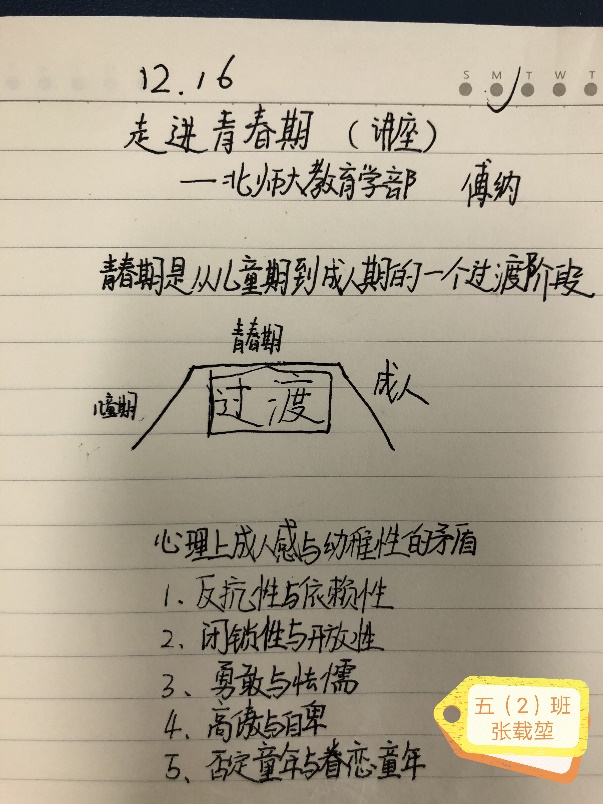 12.16
S M T W T
走进青春期（讲座）
—北师大教育学部 傅纳
青春期是从儿童期到成人期的一个过渡阶段
青春期
儿童期
过渡
成人
心理上成人感与幼稚性的矛盾
1、反抗性与依赖性
2、闭锁性与开放性
3、勇敢与怯懦
4、高傲与自卑
5、否定童年与眷恋童年
五（2）班
张载堃